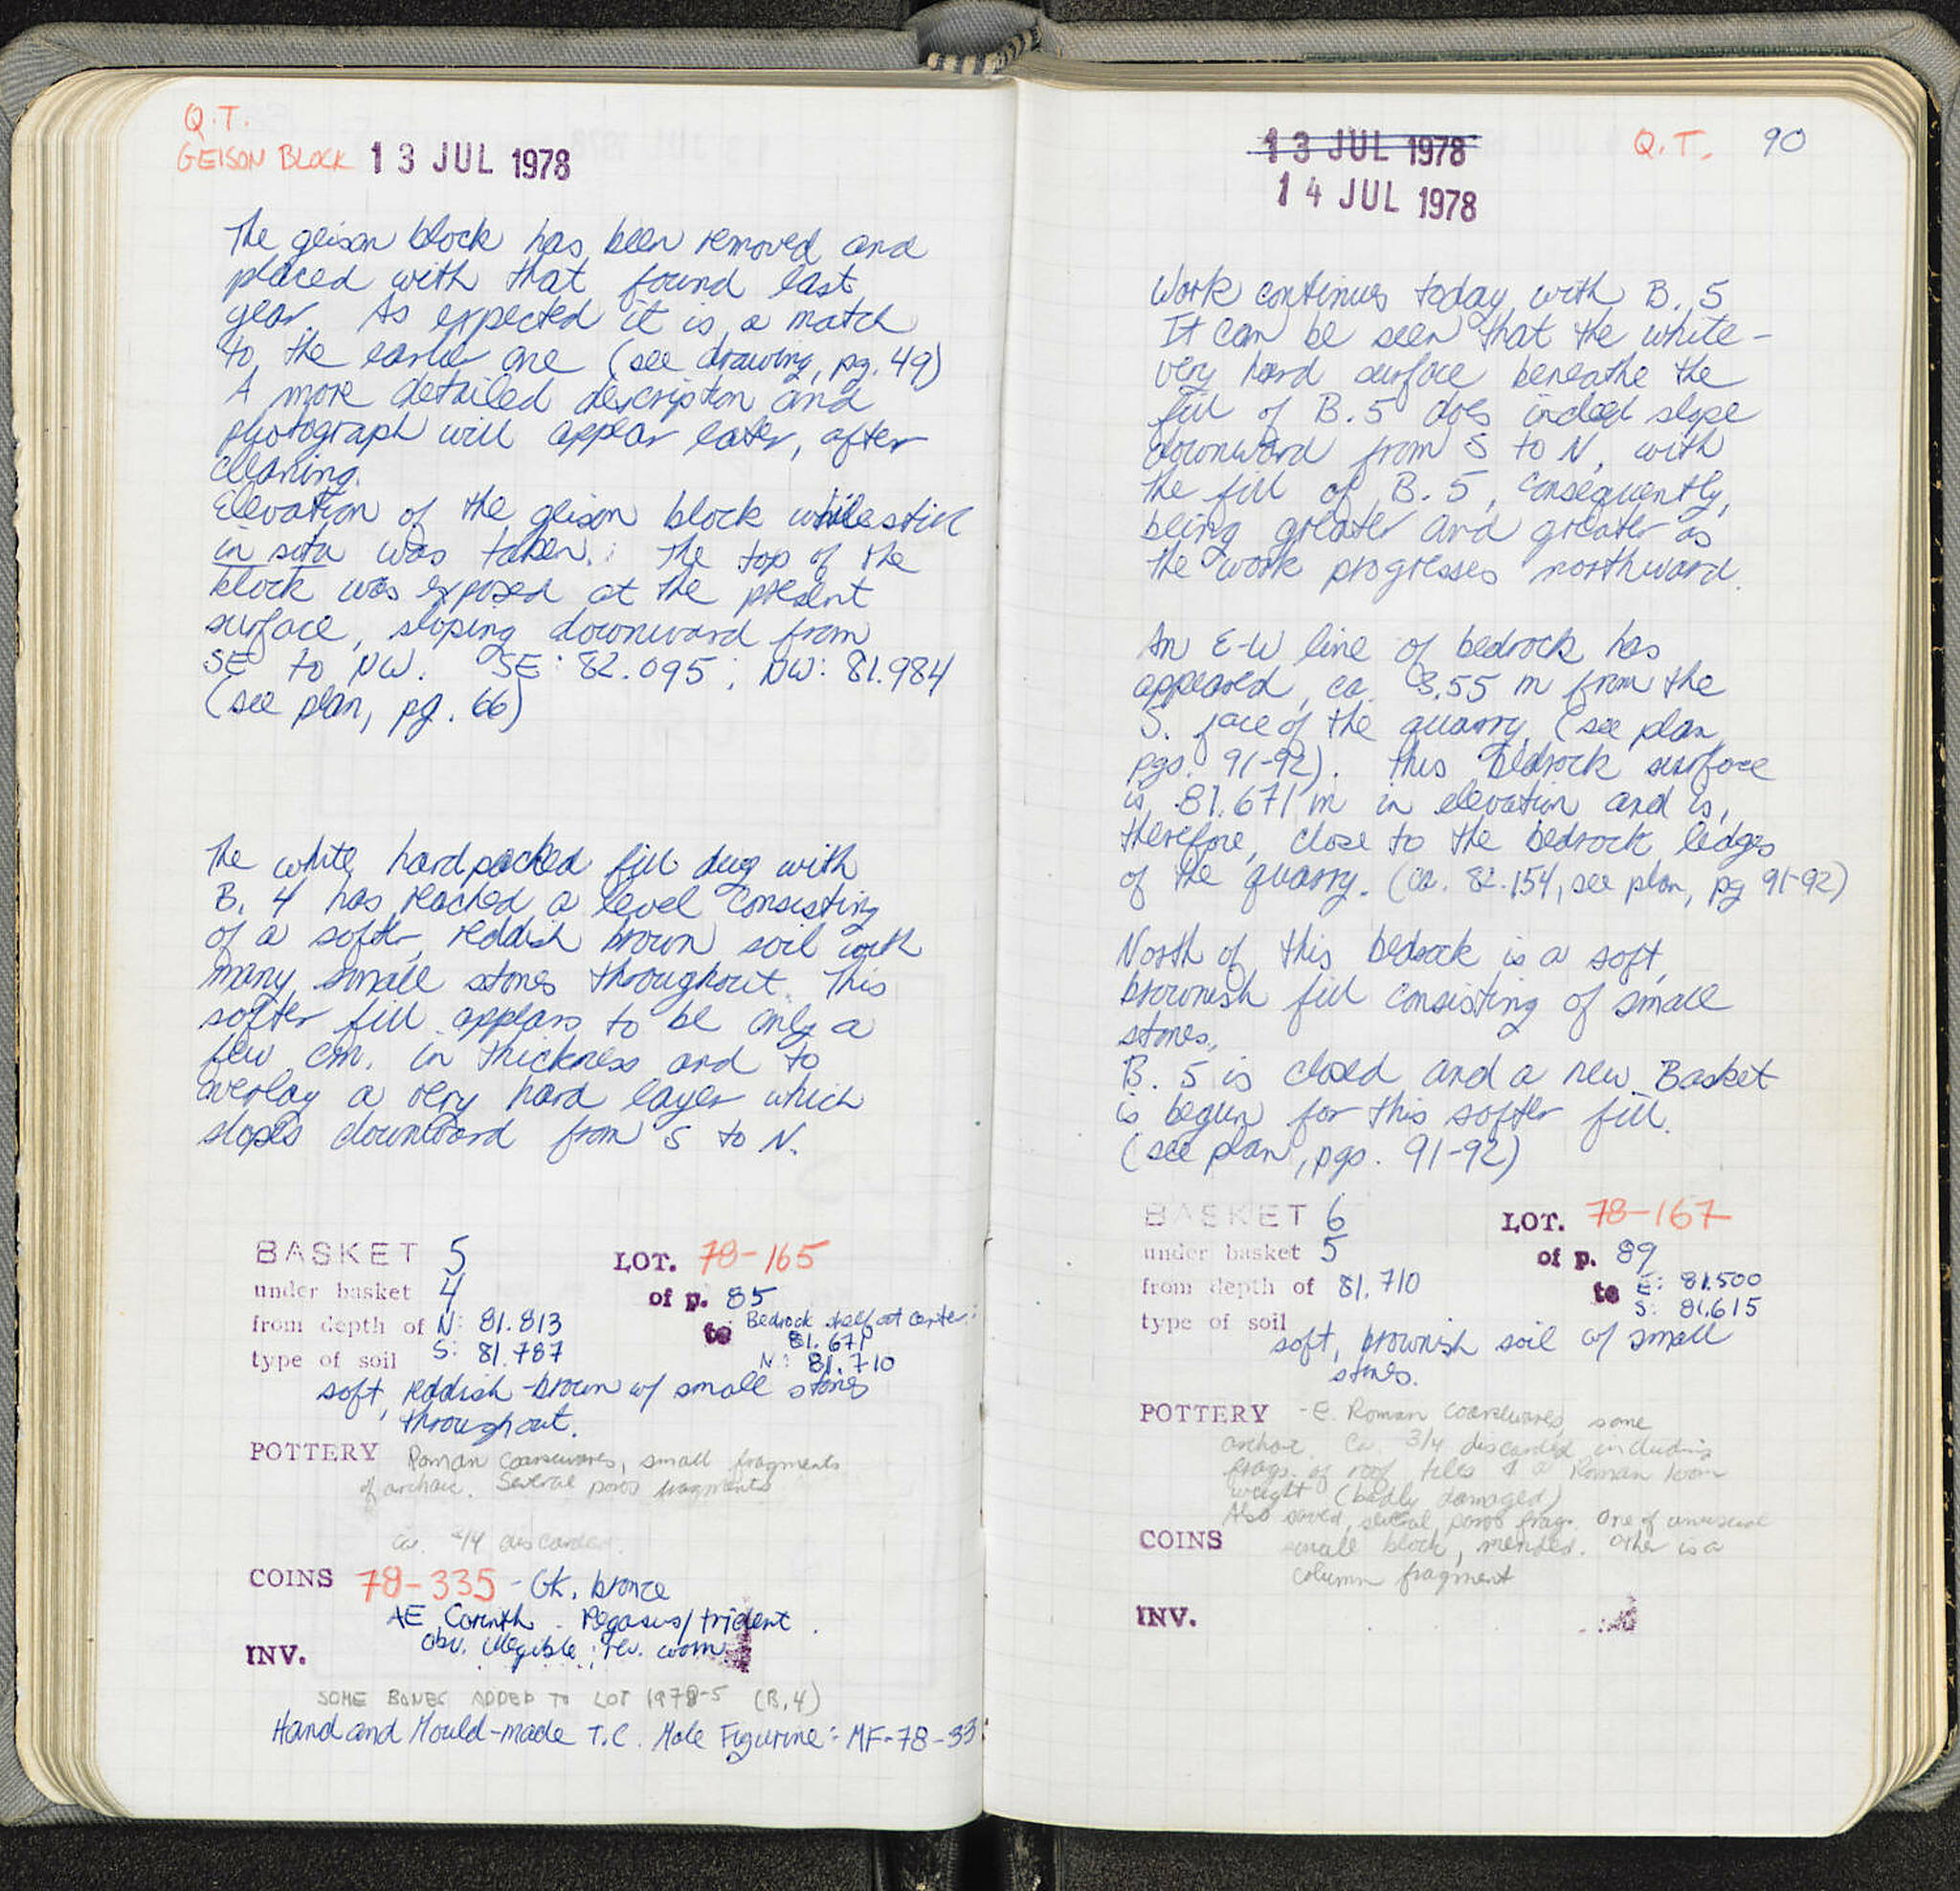 Q.T.
GEISON BLOCK 13 JUL 1978
The geison block has been removed and
placed with that found last
year. As expected it is a match
to the earlier one (see drawing, pg. 49)
A more detailed description and
photograph will appear later, after
cleaning.
Elevation of the geison block while still
in situ was taken: The top of the
block was exposed at the present
surface, sloping downward from
SE to NW. SE: 82.095; NW: 81.984
(see plan, pg. 66)
The white, hardpacked fill dug with
B. 4 has reached a level consisting
of a softer, reddish brown soil with
many small stones throughout. This
softer fill appears to be only a
few cm. in thickness and to
overlay a very hard layer which
slopes downward from S to N.
BASKET 5 LOT. 78-165
under basket 4 of p. 85
from depth of N: 81.813 to Bedrock shelf at center:
S: 81.787 81.671
type of soil N: 81.710
soft, reddish-brown w/ small stones
throughout.
POTTERY Roman coarsewares, small fragments
of archaic. Several poros fragments
ca. 3/4 discarded.
COINS 78-335 - Gk. bronze
AE Corinth. Pegasus/trident.
obv. illegible; rev. worn.
INV.
SOME BONES ADDED TO LOT 1978-5 (B.4)
Hand and Mould-made T.C. Male Figurine: MF-78-33
13 JUL 1978 Q.T. 90
14 JUL 1978
Work continues today with B. 5
It can be seen that the white-
very hard surface beneathe the
fill of B.5 does indeed slope
downward from S to N, with
the fill of B. 5, consequently,
being greater and greater as
the work progresses northward.
An E-W line of bedrock has
appeared, ca. 3.55 m from the
S. face of the quarry (see plan,
pgs. 91-92). This bedrock surface
is 81.671 m in elevation and is,
therefore, close to the bedrock ledges
of the quarry. (ca. 82.154, see plan, pg 91-92)
North of this bedrock is a soft,
brownish fill consisting of small
stones.
B. 5 is closed and a new Basket
is begun for this softer fill.
(see plan, pgs. 91-92)
BASKET 6 LOT. 78-167
under basket 5 of p. 89
from depth of 81.710 to E: 81.500
S: 81.615
type of soil
soft, brownish soil w/ small
stones.
POTTERY - E. Roman coarsewares, some
archaic. Ca. 3/4 discarded including
frags. of roof tiles & a Roman loom
weight (badly damaged)
Also saved, several poros frags. One of unusual
COINS small block, mended. Other is a
column fragment
INV.